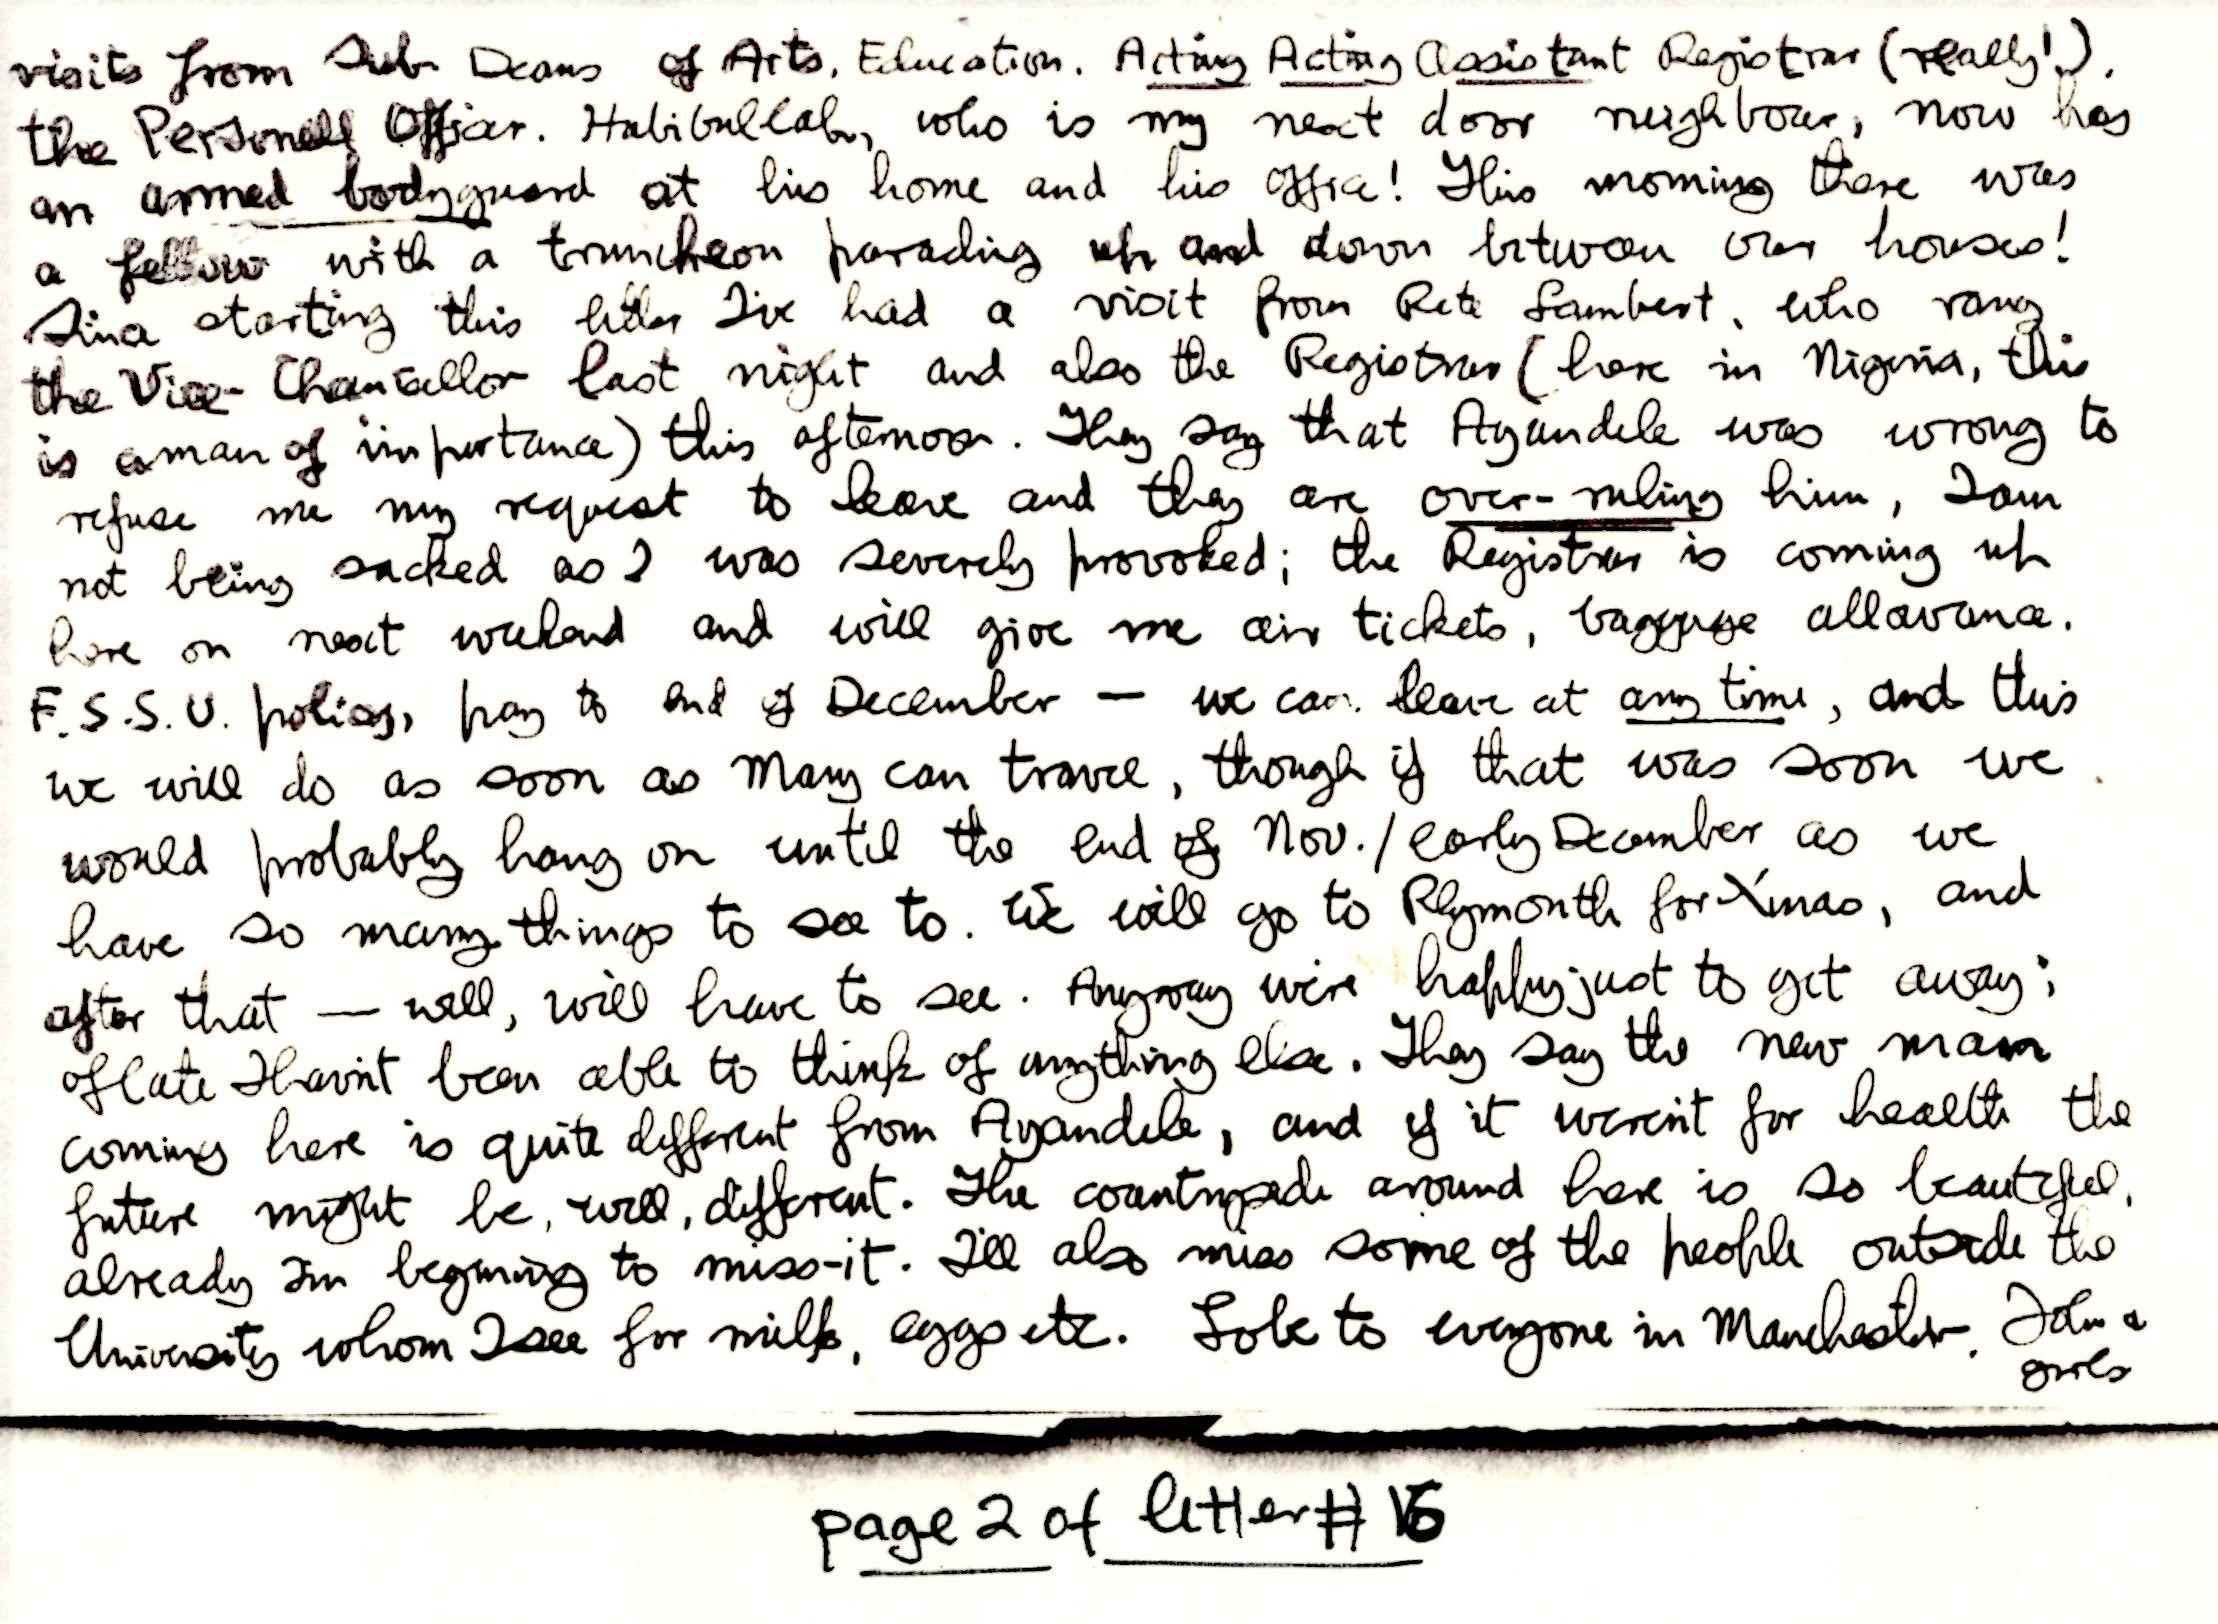 visits from Sub-Deans of Arts, Education. Acting Acting Assistant Registrar (really!),
the Personell Officer. Habibullah, who is my next door neighbour, now has
an armed bodyguard at his home and his office! This morning there was
a fellow with a truncheon parading up and down between our houses!
Since starting this letter I've had a visit from Pete Lambert, who rang
the Vice-Chancellor last night and also the Registrar (here in Nigeria, this
is a man of importance) this afternoon. They say that Ayandele was wrong to
refuse me my request to leave and they are over-ruling him, I am
not being sacked as I was severely provoked; the Registrar is coming up
here on next weekend and will give me air tickets, baggage allowance.
F.S.S.U. policy, pay to end of December — we can leave at any time, and this
we will do as soon as Mary can travel, though if that was soon we
would probably hang on until the end of Nov./early December as we
have so many things to see to. We will go to Plymouth for Xmas, and
after that — well, will have to see. Anyway we're happy just to get away;
of late I havn't been able to think of anything else. They say the new man
coming here is quite different from Ayandele, and if it weren't for health the
future might be, well, different. The countryside around here is so beautiful,
already I'm begining to miss-it. I'll also miss some of the people outside the
University whom I see for milk, eggs etc. Love to everyone in Manchester. John &
girls
page 2 of letter #